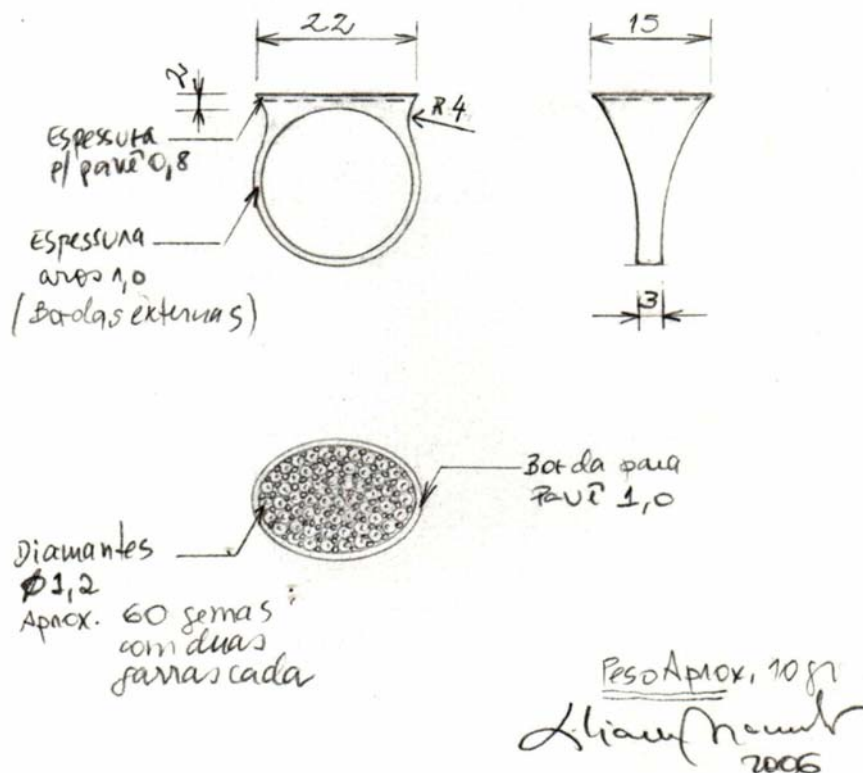 22
15
2
R.4
Espessura
p/ pavê 0,8
Espessura
aros 1,0
(Bordas externas)
3
Borda para
Pavê 1,0
Diamantes
Ø1,2
Aprox. 60 gemas
com duas
garras cada
Peso Aprox. 10 gr
2006